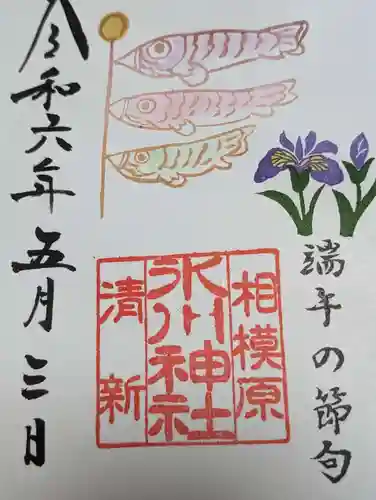 端午の節句
相模原
氷川神社
清新
令和六年五月三日